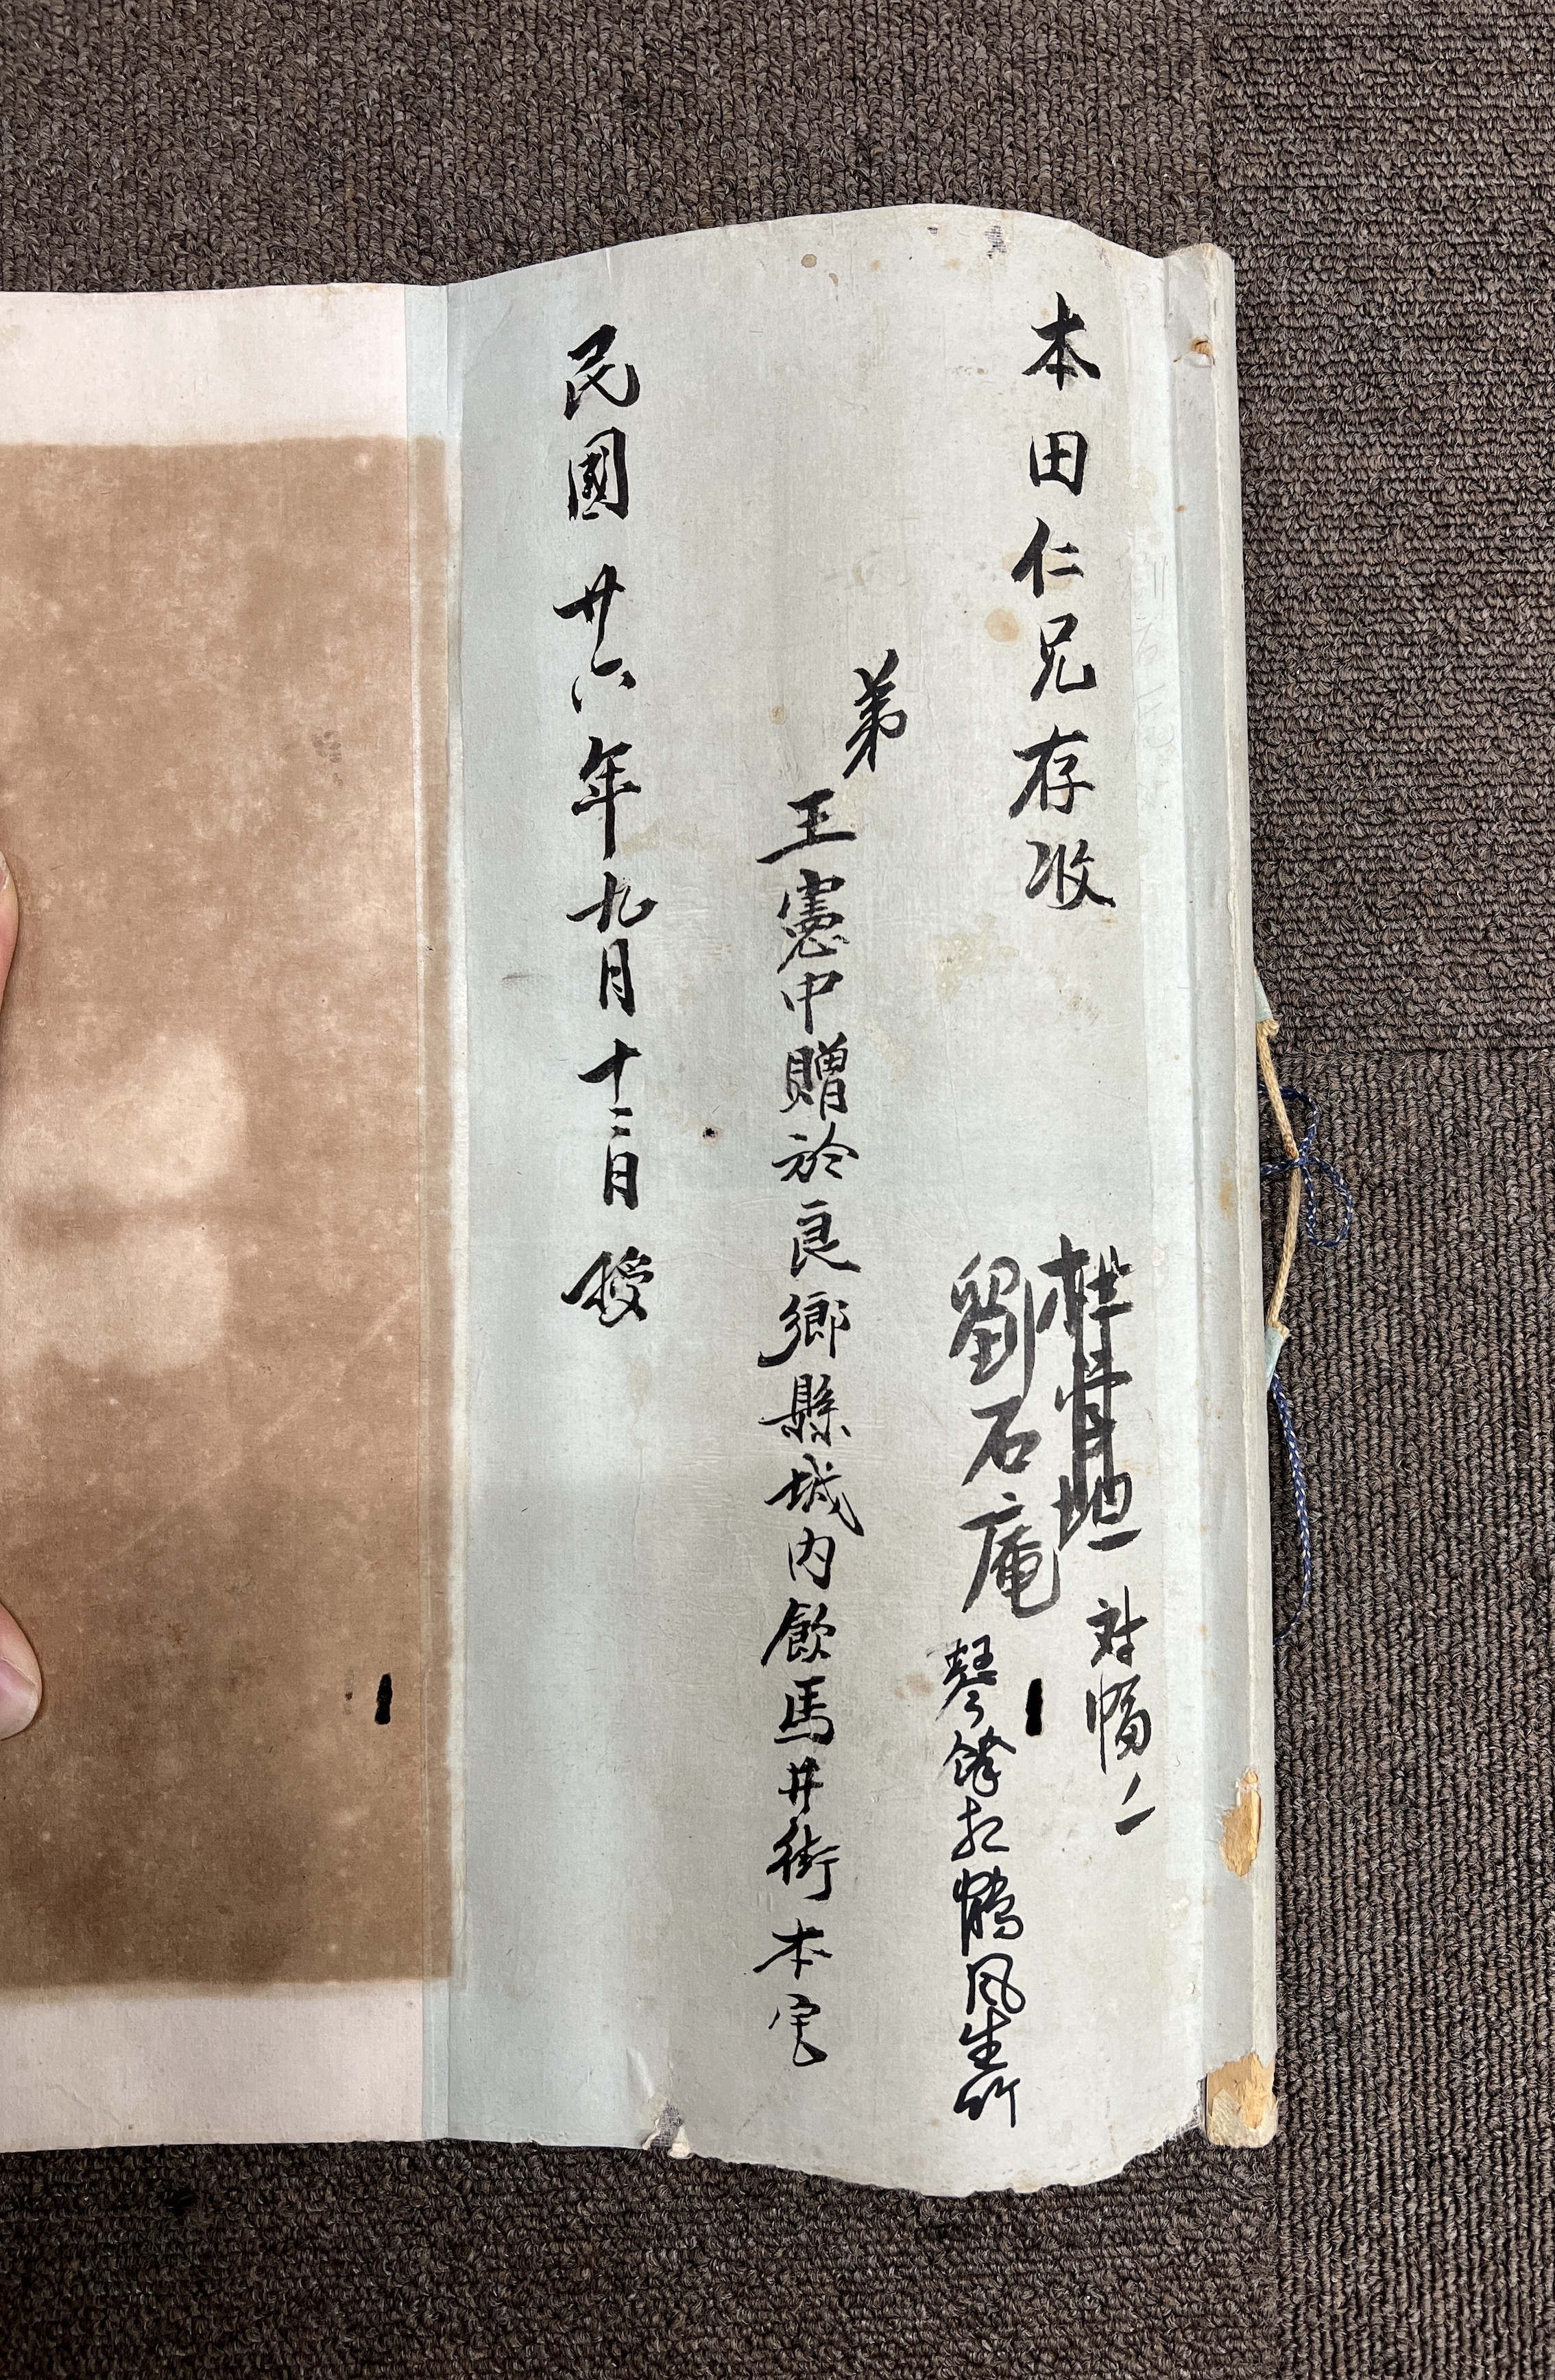 本田仁兄存收
对幅
劉石庵
琴錦和鶴風生竹
弟
王憲中贈於良鄉縣城內飲馬井街本宅
民國廿六年九月十二日授